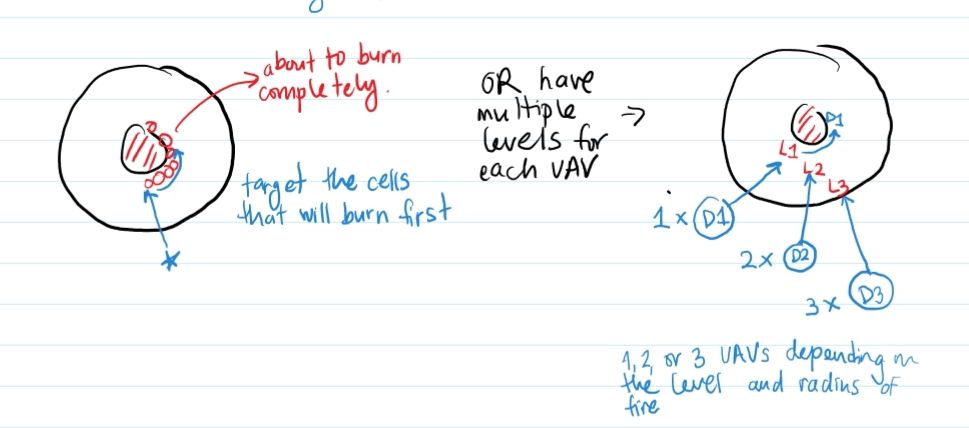 about to burn
completely.
target the cells
that will burn first
OR have
multiple →
levels for
each UAV
D1
L1
L2
L3
1 x D1
2 x D2
3 x D3
1, 2, or 3 UAVs depending on
the level and radius of
fire